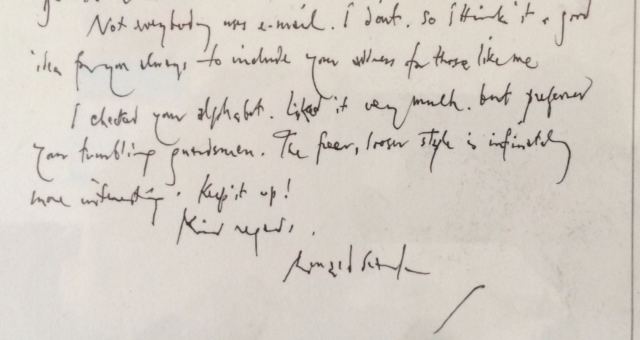 Not everybody uses e-mail. I don't. So I think it a good
idea for you always to include your address for those like me
I checked your alphabet. Liked it very much. but preferred
your tumbling guardsmen. The freer, looser style is infinitely
more interesting. Keep it up!
Kind regards.
Ronald Searle